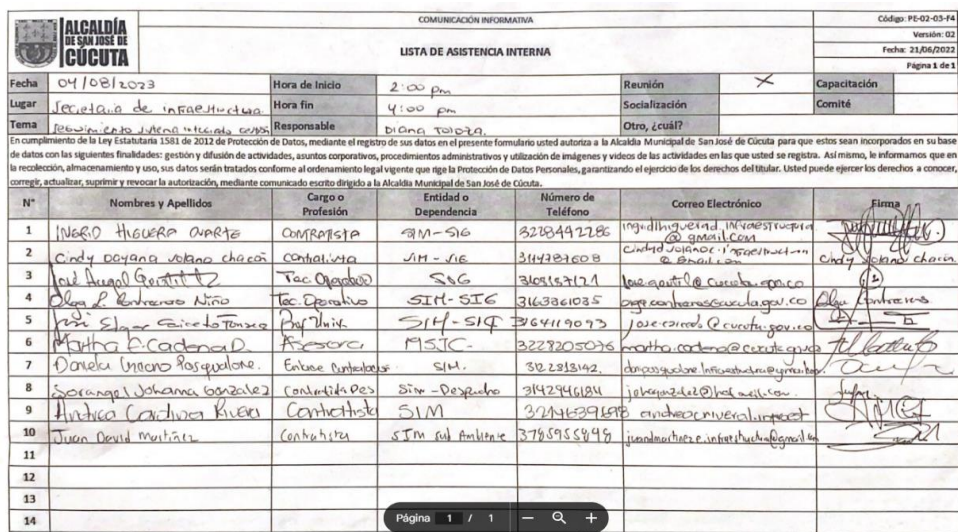 ALCALDÍA
DE SAN JOSÉ DE
CÚCUTA
COMUNICACIÓN INFORMATIVA
LISTA DE ASISTENCIA INTERNA
Código: PE-02-03-F4
Versión: 02
Fecha: 21/06/2022
Página 1 de 1
Fecha 04/08/2023 Hora de Inicio 2:00 pm Reunión X Capacitación
Lugar Secretaria de infraestructura Hora fin 4:00 pm Socialización Comité
Tema seguimiento sistema integrado gestión Responsable Diana Toloza. Otro, ¿cuál?
En cumplimiento de la Ley Estatutaria 1581 de 2012 de Protección de Datos, mediante el registro de sus datos en el presente formulario usted autoriza a la Alcaldía Municipal de San José de Cúcuta para que estos sean incorporados en su base
de datos con las siguientes finalidades: gestión y difusión de actividades, asuntos corporativos, procedimientos administrativos y utilización de imágenes y videos de las actividades en las que usted se registra. Así mismo, le informamos que en
la recolección, almacenamiento y uso, sus datos serán tratados conforme al ordenamiento legal vigente que rige la Protección de Datos Personales, garantizando el ejercicio de los derechos del titular. Usted puede ejercer los derechos a conocer,
corregir, actualizar, suprimir y revocar la autorización, mediante comunicado escrito dirigido a la Alcaldía Municipal de San José de Cúcuta.
N° Nombres y Apellidos Cargo o Profesión Entidad o Dependencia Número de Teléfono Correo Electrónico Firma
1 INGRID HIGUERA DUARTE CONTRATISTA SIM-SIG 3228442286 ingridhiguerad.infraestructura @gmail.com
2 Cindy Dayana Solano chacón Contratista SIM-SIG Cindy Solano chacón
3 José Angel Tec. Operativo SIG
4 Olga L. Contreras Niño Tec. Operativo SIM-SIG 3163361035 Olga Contreras
5 José Edgar Caicedo SIM-SIG 3164119093
6 Martha C. Cadena D. Asesora 3228205076 martha.cadena@cucuta.gov.co
7 Daniela Pasqualone. Enlace S.I.M. 3122313142.
8 Sorangel Johanna Gonzalez Contratista Des Sim-Despacho 3142946184
9 Andrea Carolina Rivera Contratista SIM
10 Juan David Martínez Contratista SIM sub Ambiente
11
12
13
14
Página 1 / 1